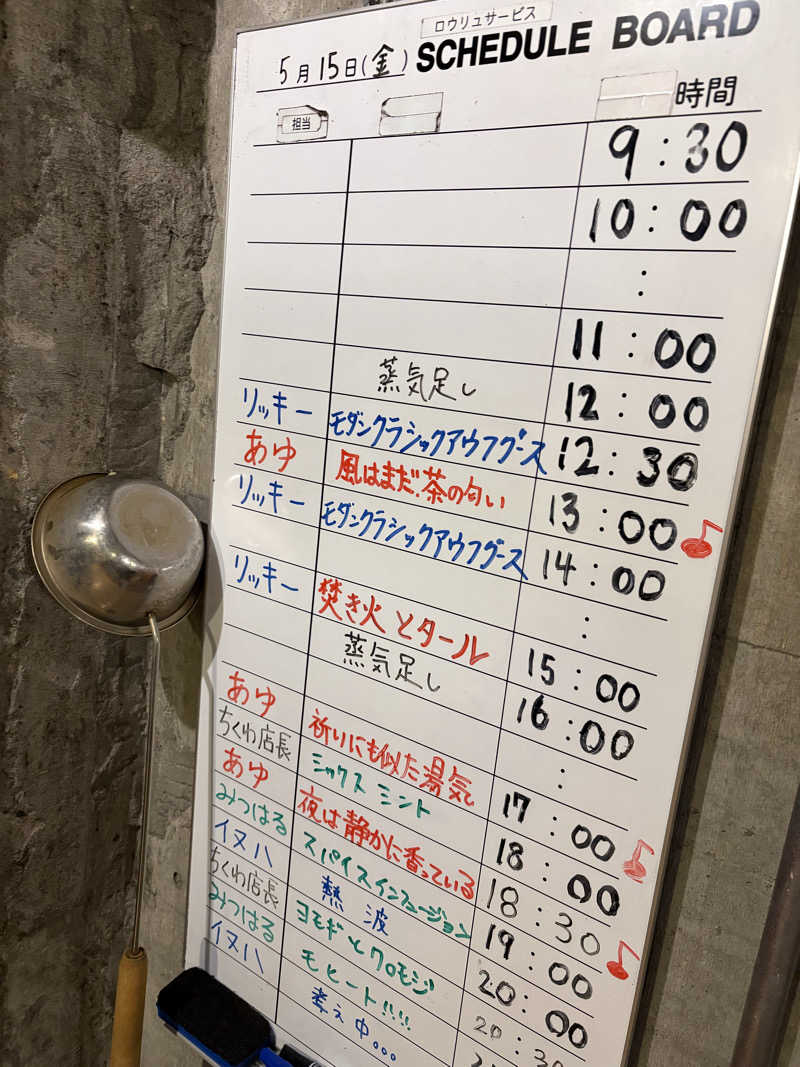 ロウリュサービス
5月15日(金) SCHEDULE BOARD
担当 時間
9:30
10:00
:
11:00
蒸気足し 12:00
リッキー モダンクラシックアウフグース 12:30
あゆ 風はまだ、茶の匂い 13:00
リッキー モダンクラシックアウフグース 14:00
:
リッキー 焚き火とタール 15:00
蒸気足し 16:00
:
あゆ 祈りにも似た湯気 17:00
ちくわ店長 シックスミント 18:00
あゆ 夜は静かに香っている 18:30
みつはる スパイスインフュージョン 19:00
イヌハ 熱波 20:00
ちくわ店長 ヨモギとクロモジ 20:30
みつはる モヒート!!!!
イヌハ 考え中...